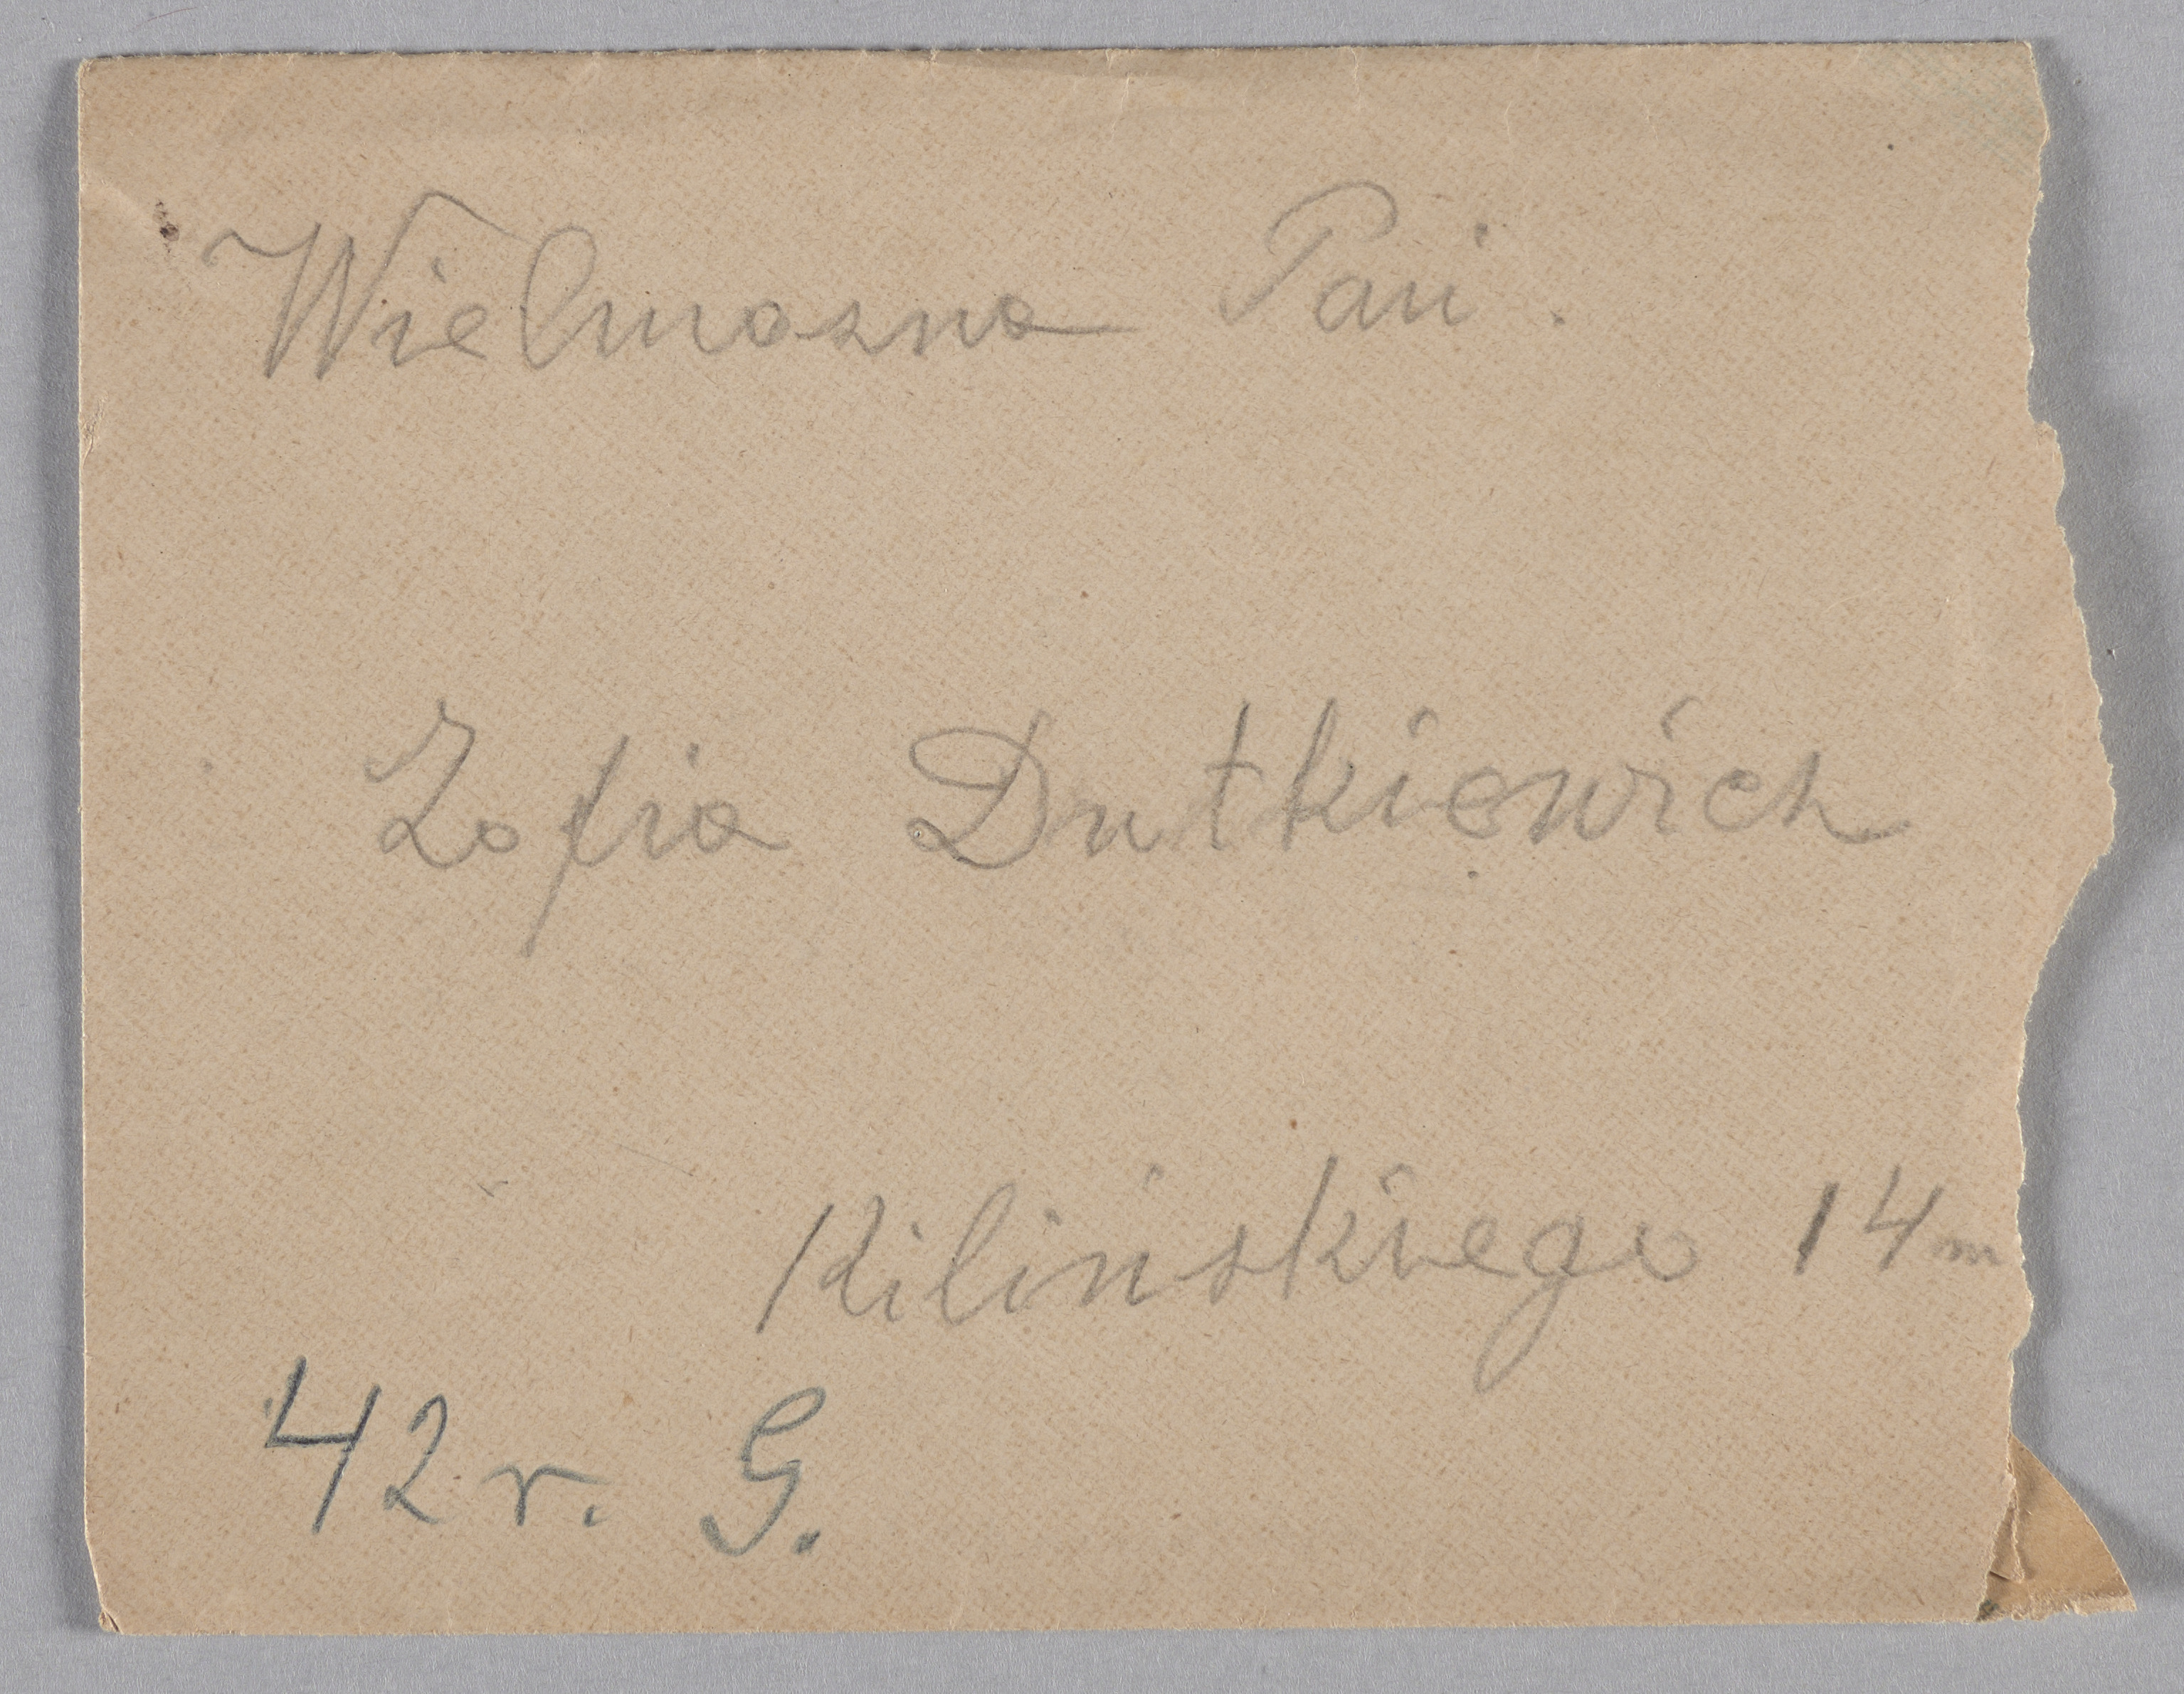 Wielmozna Pani.
Zofia Dutkiewicz
Kilińskiego 14 m
42 r. G.